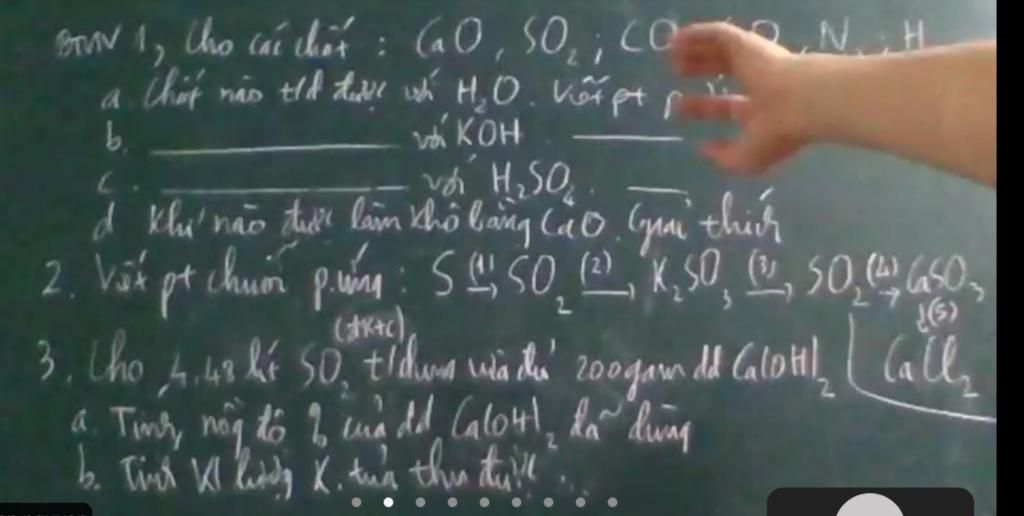 BTVN 1, Cho các chất : CaO, SO2 ; CO , N2 ; H
a. Chất nào t/d được với H2O. Viết pt
b. ——— với KOH ———
c. ——— với H2SO4. ———
d Khí nào được làm khô bằng CaO. Giải thích
2. Viết pt chuỗi p.ứng : S (1)→ SO2 (2)→ K2SO3 (3)→ SO2 (4)→ CaSO3
(đktc) ↓(5)
3. Cho 4.48 lít SO2 t/dụng vừa đủ 200gam dd Ca(OH)2 CaCl2
a. Tính nồng độ % của dd Ca(OH)2 đã dùng
b. Tính Kl lượng K. tủa thu được ...